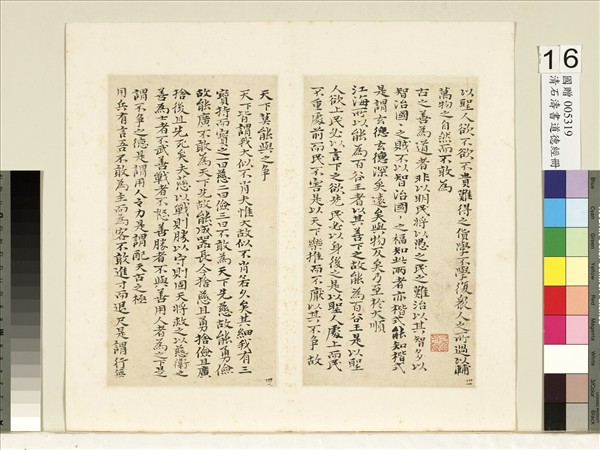 以聖人欲不欲不貴難得之貨學不學復眾人之所過以輔
萬物之自然而不敢為
古之善為道者非以明民將以愚之民之難治以其智多以
智治國國之賊不以智治國國之福知此兩者亦楷式能知楷式
是謂玄德玄德深矣遠矣與物反矣乃至於大順
江海所以能為百谷王者以其善下之故能為百谷王是以聖
人欲上民必以言下之欲先民必以身後之是以聖人處上而民
不重處前而民不害是以天下樂推而不厭以其不爭故
天下莫能與之爭
天下皆謂我大似不肖夫惟大故似不肖若肖久矣其細我有三
寶持而寶之一曰慈二曰儉三曰不敢為天下先慈故能勇儉
故能廣不敢為天下先故能成器長今捨慈且勇捨儉且廣
捨後且先死矣夫慈以戰則勝以守則固天將救之以慈衛之
善為士者不武善戰者不怒善勝者不與善用人者為之下是
謂不爭之德是謂用人之力是謂配天古之極
用兵有言吾不敢為主而為客不敢進寸而退尺是謂行無
16
國贈 005319
清石濤書道德經冊
Blue
Cyan
Green
Yellow
Red
Magenta
White
Black